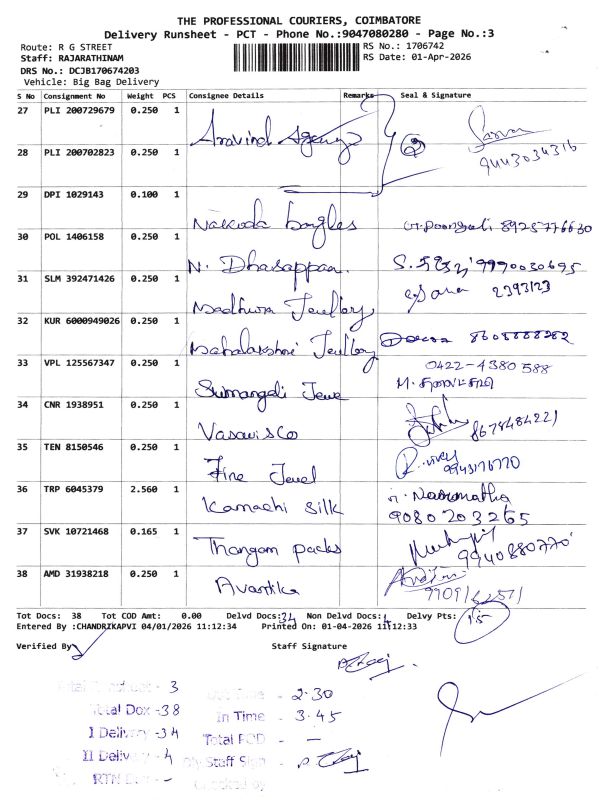 THE PROFESSIONAL COURIERS, COIMBATORE
Delivery Runsheet - PCT - Phone No.:9047080280 - Page No.:3
Route: R G STREET
RS No.: 1706742
Staff: RAJARATHINAM
RS Date: 01-Apr-2026
DRS No.: DCJB170674203
Vehicle: Big Bag Delivery
S No Consignment No Weight PCS Consignee Details Remarks Seal & Signature
27 PLI 200729679 0.250 1 Aravind Agency
28 PLI 200702823 0.250 1 9443034316
29 DPI 1029143 0.100 1 Nakoda bangles 8925776630
30 POL 1406158 0.250 1 N. Dhasappan. 9990030695
31 SLM 392471426 0.250 1 Madhura Jewllery 2393123
32 KUR 6000949026 0.250 1 Mahalakshmi Jewllery 8608888282
33 VPL 125567347 0.250 1 Sumangali Jewe 0422-4380588
34 CNR 1938951 0.250 1 Vasavis Co 8678484221
35 TEN 8150546 0.250 1 Fine Jewel 9943176770
36 TRP 6045379 2.560 1 Kamachi Silk 9080203265
37 SVK 10721468 0.165 1 Thangam packs 9940880770
38 AMD 31938218 0.250 1 Avantika
Tot Docs: 38 Tot COD Amt: 0.00 Delvd Docs: 34 Non Delvd Docs: 4 Delvy Pts: 15
Entered By :CHANDRIKAPVI 04/01/2026 11:12:34 Printed On: 01-04-2026 11:12:33
Verified By Staff Signature
- 3 - 2.30
Total Dox - 38 In Time - 3.45
I Delivery - 34 Total POD - —
II Delivery - 4 Staff Sign -
RTN